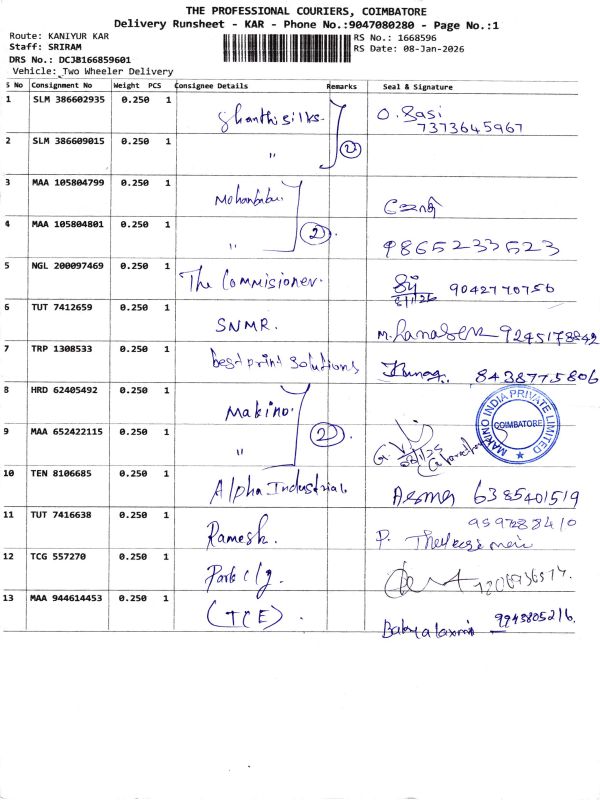 THE PROFESSIONAL COURIERS, COIMBATORE
Delivery Runsheet - KAR - Phone No.:9047080280 - Page No.:1
Route: KANIYUR KAR
RS No.: 1668596
Staff: SRIRAM
RS Date: 08-Jan-2026
DRS No.: DCJB166859601
Vehicle: Two Wheeler Delivery
S No Consignment No Weight PCS Consignee Details Remarks Seal & Signature
1 SLM 386602935 0.250 1 Shanthi silks. O. Sasi
7373645967
2 SLM 386609015 0.250 1 " 2
3 MAA 105804799 0.250 1 Mohanbabu
4 MAA 105804801 0.250 1 " 2 9865233523
5 NGL 200097469 0.250 1 The Commisioner. 8/1/26 9042770756
6 TUT 7412659 0.250 1 SNMR. 9245178842
7 TRP 1308533 0.250 1 best print solutions 8438775806
8 HRD 62405492 0.250 1 Makino.
MAKINO INDIA PRIVATE LIMITED
COIMBATORE
9 MAA 652422115 0.250 1 " 2
10 TEN 8106685 0.250 1 Alpha Industrial. 6385401519
11 TUT 7416638 0.250 1 Ramesh. P.
12 TCG 557270 0.250 1 Park clg.
13 MAA 944614453 0.250 1 (TCE) 9943805216.